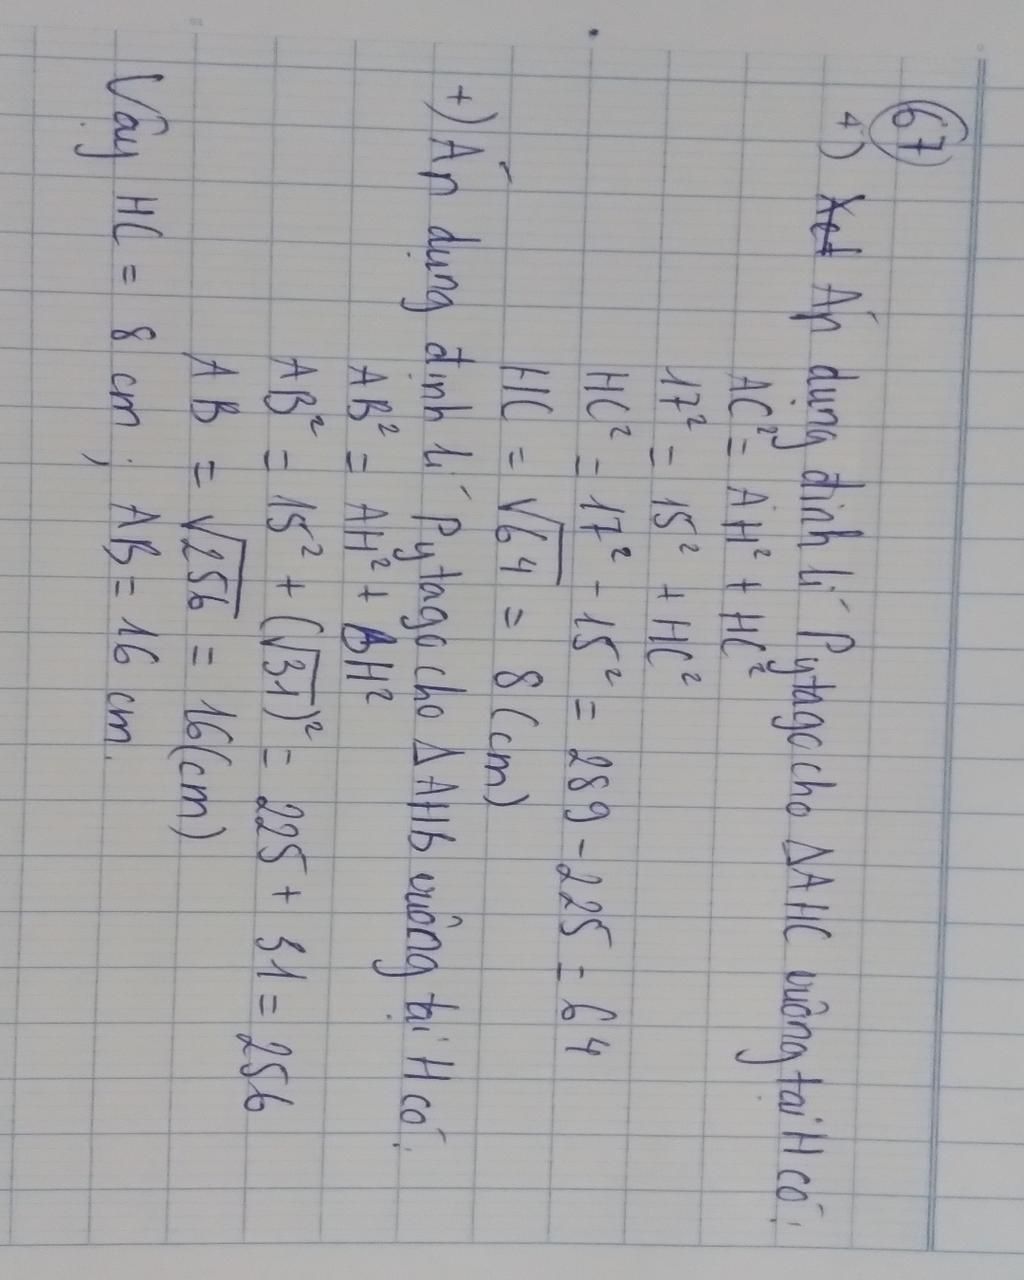 67
4) Áp dụng định lí Pytago cho ΔAHC vuông tại H có:
AC² = AH² + HC²
17² = 15² + HC²
HC² = 17² - 15² = 289 - 225 = 64
HC = √64 = 8 (cm)
+) Áp dụng định lí Pytago cho ΔAHB vuông tại H có:
AB² = AH² + BH²
AB² = 15² + (√31)² = 225 + 31 = 256
AB = √256 = 16 (cm)
Vậy HC = 8 cm; AB = 16 cm.